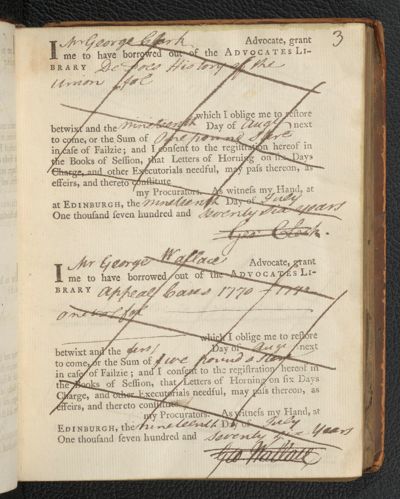 3
I Mr George Clerk Advocate, grant
me to have borrowed out of the ADVOCATES LI-
BRARY De foes History of the
Union fol
which I oblige me to reſtore
betwixt and the nineteenth Day of Augt next
to come, or the Sum of One pound ster
in caſe of Failzie; and I conſent to the regiſtration hereof in
the Books of Seſſion, that Letters of Horning on ſix Days
Charge, and other Executorials needful, may paſs thereon, as
effeirs, and thereto conſtitute
my Procurators. As witneſs my Hand, at
at EDINBURGH, the nineteenth Day of July
One thouſand ſeven hundred and seventy six years
Geo Clerk.
I Mr George Wallace Advocate, grant
me to have borrowed out of the ADVOCATES LI-
BRARY Appeal Cases 1770
one vol fol
which I oblige me to reſtore
betwixt and the Day of Augt next
to come, or the Sum of five pound ster
in caſe of Failzie; and I conſent to the regiſtration hereof in
the Books of Seſſion, that Letters of Horning on ſix Days
Charge, and other Executorials needful, may paſs thereon, as
effeirs, and thereto conſtitute
my Procurators. As witneſs my Hand, at
EDINBURGH, the nineteenth Day of July
One thouſand ſeven hundred and seventy six years
Geo Wallace